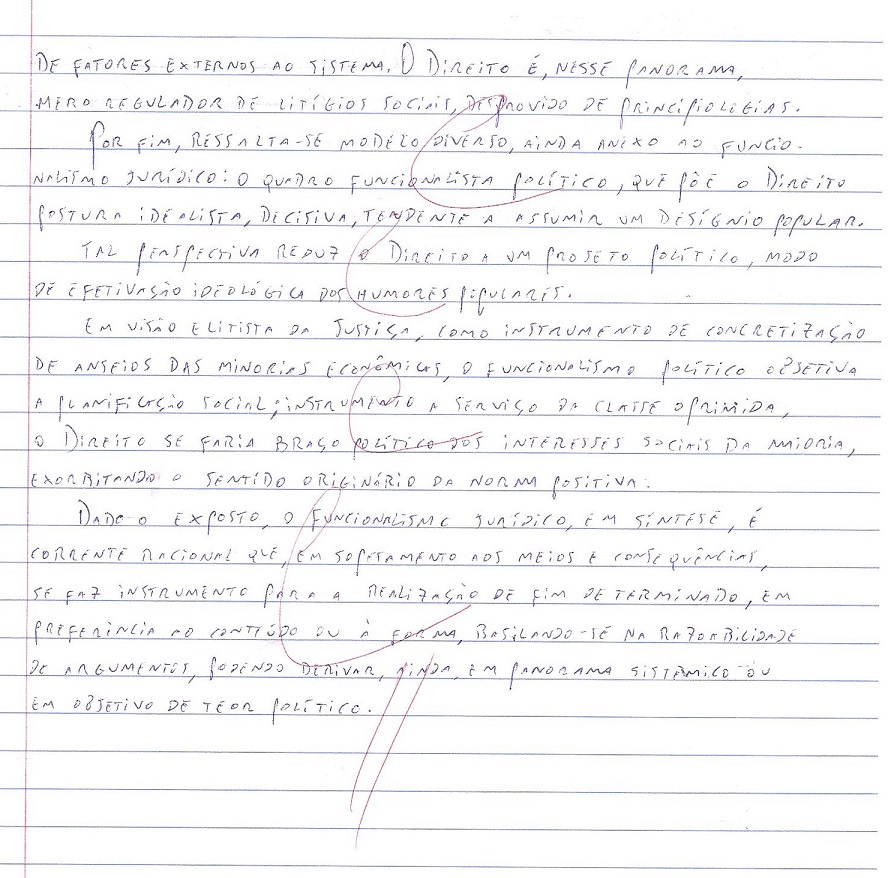 DE FATORES EXTERNOS AO SISTEMA. O DIREITO É, NESSE PANORAMA,
MERO REGULADOR DE LITÍGIOS SOCIAIS, DESPROVIDO DE PRINCIPIOLOGIAS.
POR FIM, RESSALTA-SE MODELO DIVERSO, AINDA ANEXO AO FUNCIO-
NALISMO JURÍDICO: O QUADRO FUNCIONALISTA POLÍTICO, QUE PÕE O DIREITO
POSTURA IDEALISTA, DECISIVA, TENDENTE A ASSUMIR UM DESÍGNIO POPULAR.
TAL PERSPECTIVA REDUZ O DIREITO A UM PROJETO POLÍTICO, MODO
DE EFETIVAÇÃO IDEOLÓGICA DOS HUMORES POPULARES.
EM VISÃO ELITISTA DA JUSTIÇA, COMO INSTRUMENTO DE CONCRETIZAÇÃO
DE ANSEIOS DAS MINORIAS ECONÔMICAS, O FUNCIONALISMO POLÍTICO OBJETIVA
A PLANIFICAÇÃO SOCIAL; INSTRUMENTO A SERVIÇO DA CLASSE OPRIMIDA,
O DIREITO SE FARIA BRAÇO POLÍTICO DOS INTERESSES SOCIAIS DA MAIORIA,
EXORBITANDO O SENTIDO ORIGINÁRIO DA NORMA POSITIVA.
DADO O EXPOSTO, O FUNCIONALISMO JURÍDICO, EM SÍNTESE, É
CORRENTE RACIONAL QUE, EM SOPESAMENTO AOS MEIOS E CONSEQUÊNCIAS,
SE FAZ INSTRUMENTO PARA A REALIZAÇÃO DE FIM DETERMINADO, EM
PREFERÊNCIA AO CONTEÚDO OU À FORMA, BASILANDO-SE NA RAZOABILIDADE
DE ARGUMENTOS, PODENDO DERIVAR, AINDA, EM PANORAMA SISTÊMICO OU
EM OBJETIVO DE TEOR POLÍTICO.